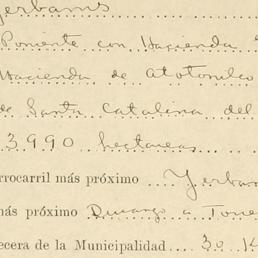 Yerbanis
Poniente con Hacienda
Hacienda de Atotonilco
de Santa Catalina del
3,990 hectareas
rrocarril más próximo Yerban
más próximo Durango a Torre
ecera de la Municipalidad 30 K